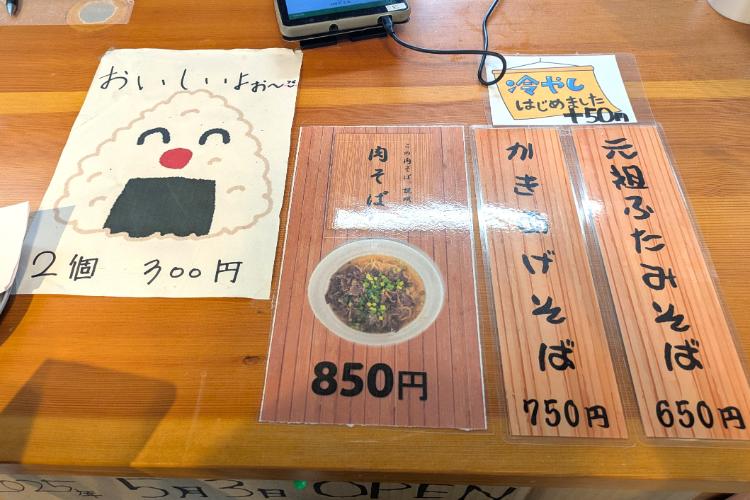 おいしいよぉ〜
2個 300円
この肉そば、禁断。
肉そば
850円
冷やし
はじめました
+50円
かきあげそば
750円
元祖ふたみそば
650円
2025年 5月3日 OPEN